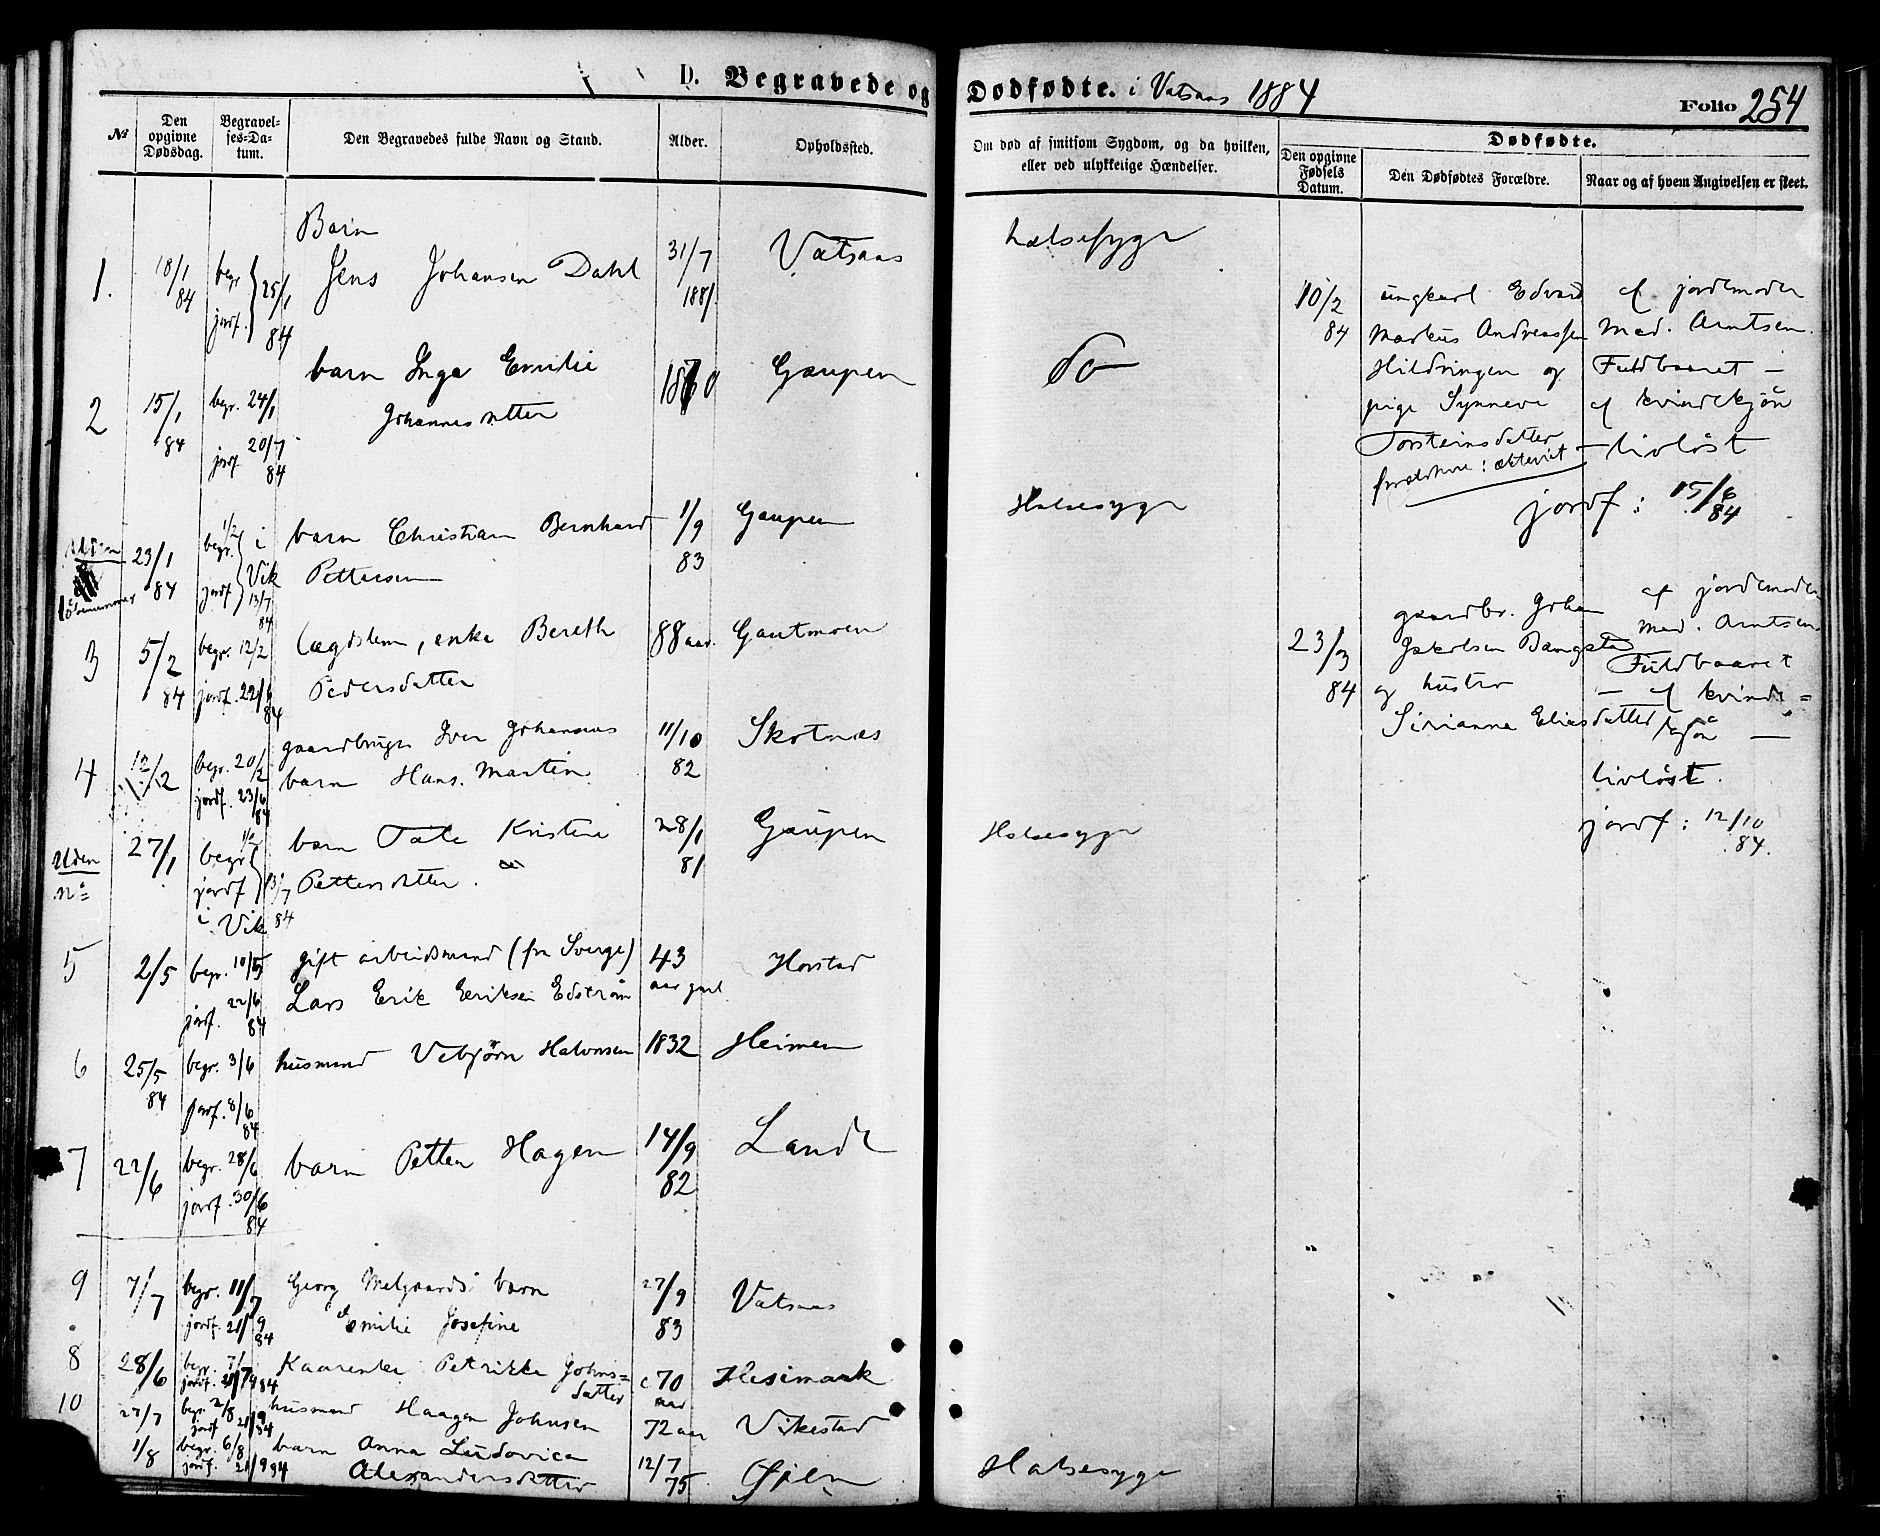 D. Begravede og Dødfødte. i Vatsaas 1884
Folio 254
№
Den opgivne Dødsdag.
Begravelses-Datum.
Den Begravedes fulde Navn og Stand.
Alder.
Opholdssted.
Om død af smitsom Sygdom, og da hvilken, eller ved ulykkelige Hændelser.
Dødfødte.
Den opgivne Fødsels Datum.
Den Dødfødtes Forældre.
Naar og af hvem Angivelsen er skeet.
1. 18/1 84 begr. jordf. 25/1 84 Barn
Jens Johansen Dahl 31/7 1881. Vatsaas halsesyge
2 15/1 84 begr. 24/1 jordf 20/7 84 barn Inga Emilie
Johannesdtter 1880 Gaupen Do
Uden
23/1 84 begr. 1/2 jordf i Vik 13/7 84 barn Christian Bernhard
Pettersen 1/9 83 Gaupen Halsesyge
3 5/2 84 begr. 12/2 jordf. 22/6 84 lægdslem, enke Bereth
Pedersdatter 88 aar. Gautmoen
4 12/2 begr. 20/2 jordf. 23/6 84 gaardbruger Iver Johansens
barn Hans. Martin 11/10 82 Skotnes
Uden
n°
27/1 begr 1/2 jordf 13/7 84 i Vik barn Kristine
Pettersdtter. 28/1 81 Gaupen Halsesyge
5 2/5 begr. 10/5 jordf. 22/6 84 gift arbeidsmand (fra Sverge)
Lars Erik Eriksen Edstrøm 43 aar gml. Horstad
6 25/5 84 begr. 3/6 jordf. 8/6 84 husmand Vebjørn Halvorsen 1832 Heimen
7 22/6 begr. 28/6 jordf. 30/6 84 barn Petter Hagen 14/9 82 Lande
9 7/7 begr. 11/7 jordf. 21/9 84 Georg Melgaards barn
Emilie Josefine 27/9 83 Vatsaas
8 28/6 begr. 7/7 jordf. 21/9 84 Kaarenke Petrikke Johns=
datter c 70 aar Hesimark
10 27/7 begr. 2/8 jordf 21/9 84 husmand Haagen Johnsen 72 aar Vikestad
1/8 begr. 6/8 jordf. 21/9 84 barn Anna Ludovica
Alexandersdatter 12/7 75 Øjen Halsesyge
10/2 84
ungkarl Edvard
Markus Andreassen
Hildringen og
pige Synneve
Torsteinsdatter
foreldrene: ektevit
af jordemoder
Mad. Arntsen.
Fuldbaaret –
af kvindekjøn
– livløst
jordf: 15/6 84
23/3 84
gaardbr. Johan
Jakobsen Bangstad
og hustru
Sirianna Eliasdatter
af jordemoder
Mad. Arntsen.
Fuldbaaret
– af kvinde=
kjøn –
livløst.
jordf: 12/10 84.